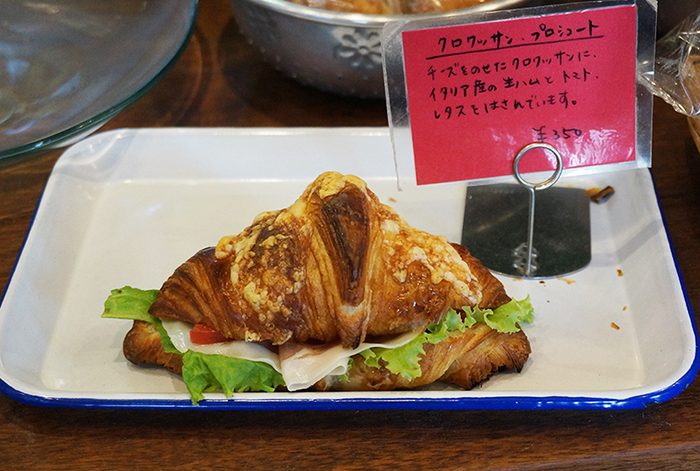 クロワッサン.プロシュート
チーズをのせたクロワッサンに、
イタリア産の生ハムとトマト、
レタスをはさんでいます。
¥350